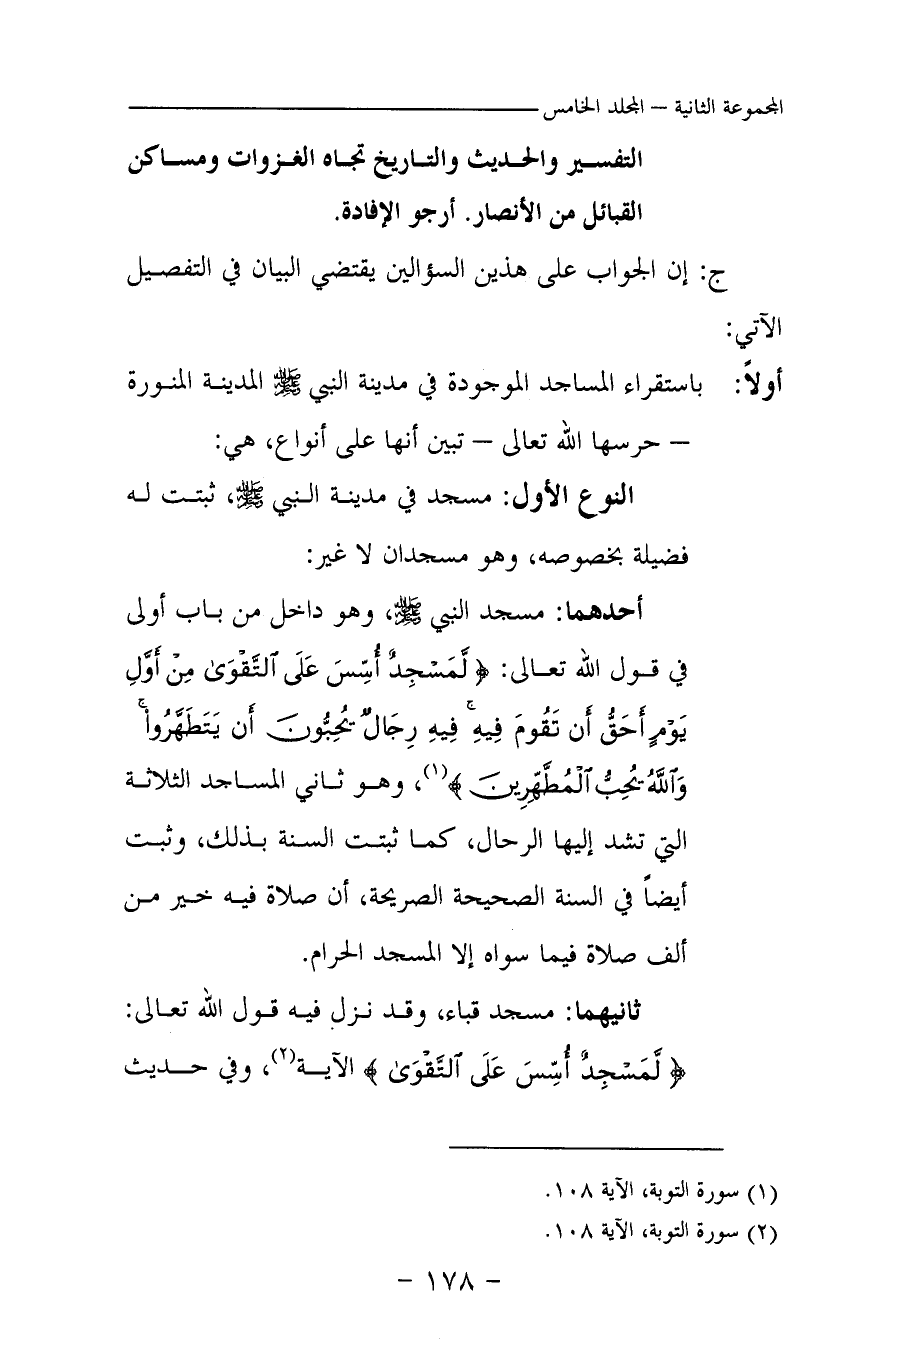 المجموعة الثانية – المجلد الخامس
التفسير والحديث والتاريخ تجاه الغزوات ومساكن
القبائل من الأنصار. أرجو الإفادة.
ج: إن الجواب على هذين السؤالين يقتضي البيان في التفصيل
الآتي:
أولاً: باستقراء المساجد الموجودة في مدينة النبي ﷺ المدينة المنورة
– حرسها الله تعالى – تبين أنها على أنواع، هي:
النوع الأول: مسجد في مدينة النبي ﷺ، ثبتت له
فضيلة بخصوصه، وهو مسجدان لا غير:
أحدهما: مسجد النبي ﷺ، وهو داخل من باب أولى
في قول الله تعالى: ﴿ لَّمَسْجِدٌ أُسِّسَ عَلَى ٱلتَّقْوَىٰ مِنْ أَوَّلِ
يَوْمٍ أَحَقُّ أَن تَقُومَ فِيهِ ۚ فِيهِ رِجَالٌ يُحِبُّونَ أَن يَتَطَهَّرُوا۟ ۚ
وَٱللَّهُ يُحِبُّ ٱلْمُطَّهِّرِينَ ﴾(١)، وهو ثاني المساجد الثلاثة
التي تشد إليها الرحال، كما ثبتت السنة بذلك، وثبت
أيضاً في السنة الصحيحة الصريحة، أن صلاة فيه خير من
ألف صلاة فيما سواه إلا المسجد الحرام.
ثانيهما: مسجد قباء، وقد نزل فيه قول الله تعالى:
﴿ لَّمَسْجِدٌ أُسِّسَ عَلَى ٱلتَّقْوَىٰ ﴾ الآية(٢)، وفي حديث
(١) سورة التوبة، الآية ١٠٨.
(٢) سورة التوبة، الآية ١٠٨.
– ١٧٨ –